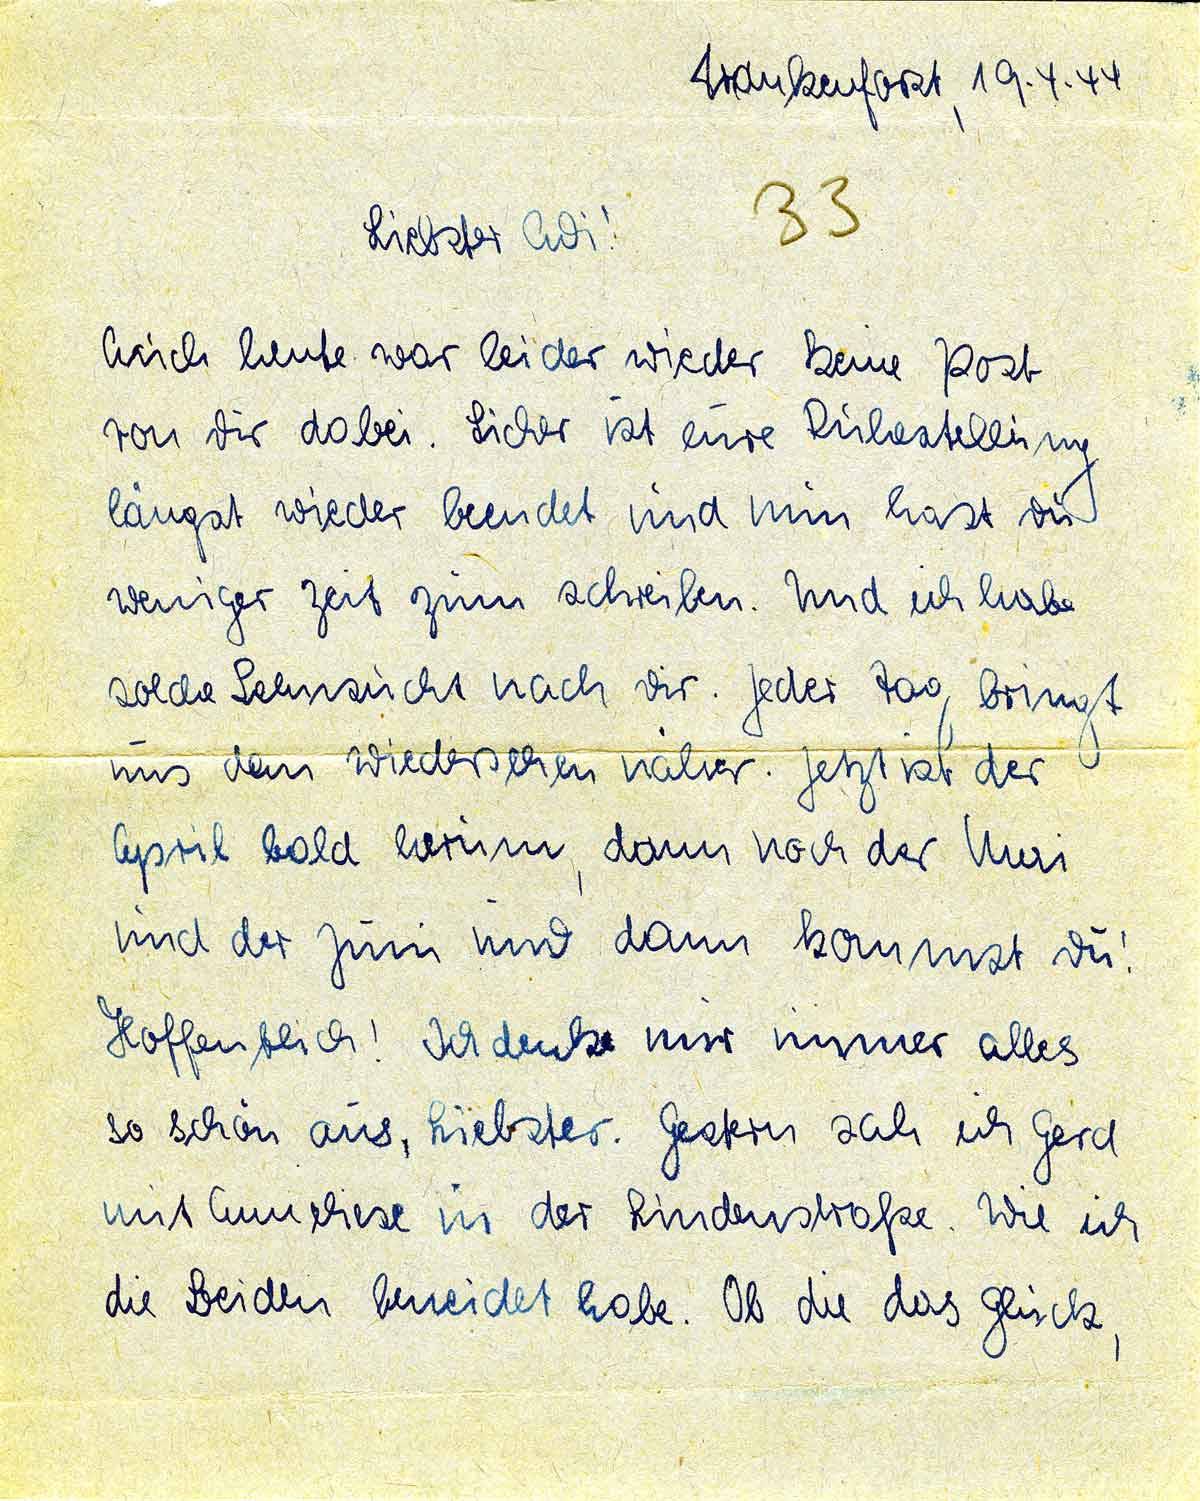 Frankenforst, 19.4.44
33
Liebster Adi!
Auch heute war leider wieder keine Post
von dir dabei. Sicher ist eure Ruhestellung
längst wieder beendet und nun hast du
weniger Zeit zum schreiben. Und ich habe
solche Sehnsucht nach dir. Jeder Tag bringt
uns dem Wiedersehen näher. Jetzt ist der
April bald herum, dann noch der Mai
und der Juni und dann kommst du!
Hoffentlich! Ich denke mir immer alles
so schön aus, Liebster. Gestern sah ich Gerd
mit Anneliese in der Lindenstraße. Wie ich
die Beiden beneidet habe. Ob die das Glück,